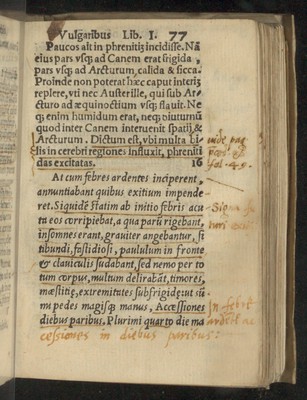 Vulgaribus Lib. I. 77
Paucos alt in phrenitij incidisse. Nã
eius pars vsq; ad Canem erat frigida,
pars vsq; ad Arcturum, calida & sicca.
Proinde non poterat hæc caput interiz
replere, vti nec Austerille, qui sub Ar-
cturo ad æquinoctium vsq; flauit. Ne
q; enim humidum erat, neq; diuturnũ
quod inter Canem interuenit spatij, &
Arcturum. Dictum est, vbi multa bi
lis in cerebri regiones influxit, phreniti
das excitatas. 16
At cum febres ardentes inciperent,
annuntiabant quibus exitium impende
ret. Siquidẽ statim ab initio febris acu
ta eos corripiebat, a qua parũ rigebant,
insomnes erant, grauiter angebantur, si
tibundi, fastidiosi, paululum in fronte
& clauiculis sudabant, sed nemo per to
tum corpus, multum delirabãt, timores,
mæstitiẹ, extremitates subfrigidẹ: ut sũ
mi pedes magisq; manus, Accessiones
diebus paribus. Plurimi quarto die ma
vide pag
fol. 49.
In febri
ardẽti ac
cessiones in diebus paribus: